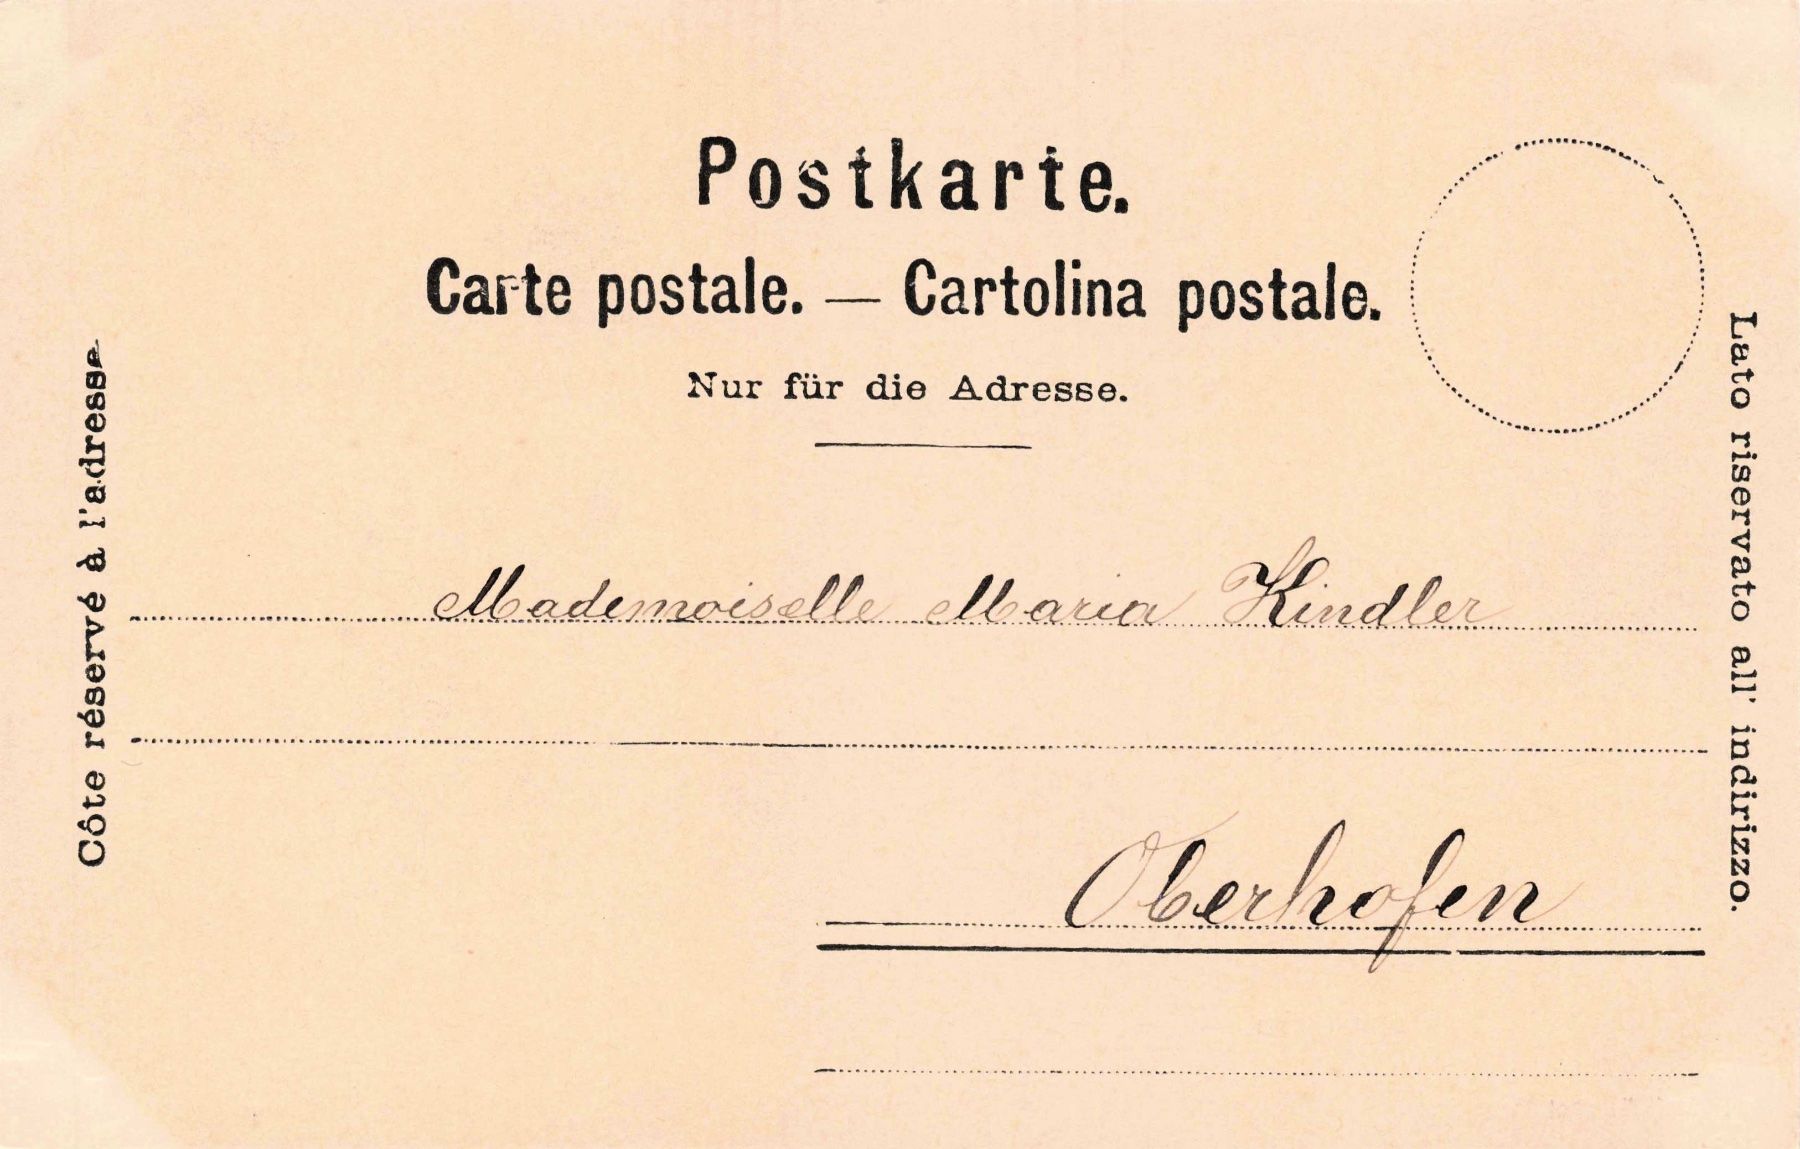 Postkarte.
Carte postale. — Cartolina postale.
Nur für die Adresse.
Côte réservé à l'adresse
Lato riservato all' indirizzo.
Mademoiselle Maria Kindler
Oberhofen